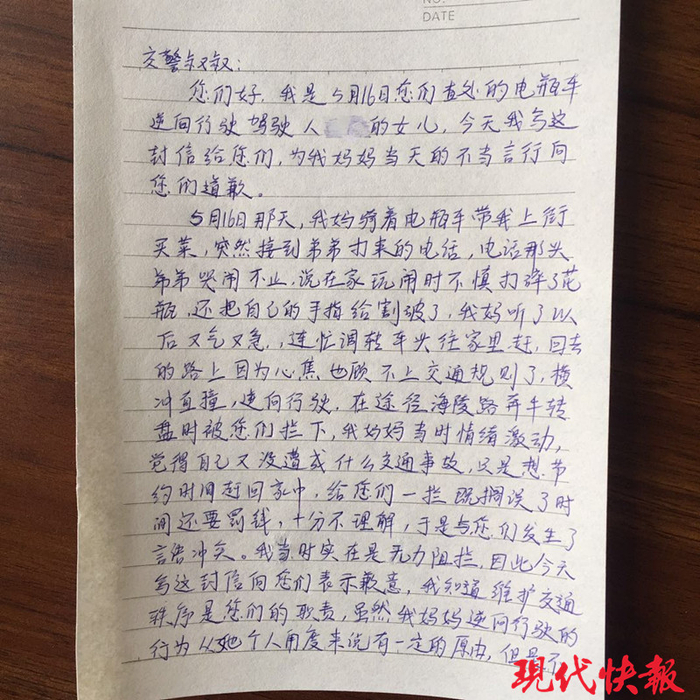 DATE
交警叔叔:
您们好,我是5月16日您们查处的电瓶车
逆向行驶驾驶人的女儿,今天我写这
封信给您们,为我妈妈当天的不当言行向
您们道歉。
5月16日那天,我妈骑着电瓶车带我上街
买菜,突然接到弟弟打来的电话,电话那头
弟弟哭闹不止,说在家玩闹时不慎打碎了花
瓶,还把自己的手指给割破了,我妈听了以
后又气又急,连忙调转车头往家里赶,回去
的路上因为心焦也顾不上交通规则了,横
冲直撞,逆向行驶,在途径海陵路奔牛转
盘时被您们拦下,我妈妈当时情绪激动,
觉得自己又没遭成什么交通事故,只是想节
约时间赶回家中,给您们一拦既搁误了时
间还要罚钱,十分不理解,于是与您们发生了
言语冲突。我当时实在是无力阻拦,因此今天
写这封信向您们表示歉意,我知道维护交通
秩序是您们的职责,虽然我妈妈逆向行驶的
行为从她个人角度来说有一定的原由,但是不
现代快报